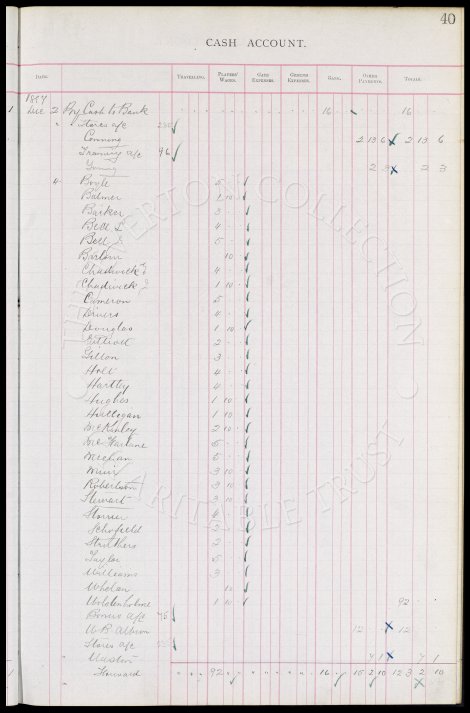 40
CASH ACCOUNT.
DATE. TRAVELLING. PLAYERS' WAGES. GATE EXPENSES. GROUND EXPENSES. BANK. OTHER PAYMENTS. TOTALS.
1897
1 Dec 2 By Cash to Bank 16 - - 16 - -
" " Stores a/c
Conning 2 13 6 2 13 6
Training a/c 96
2 3 2 3
4 Boyle 5 - -
Balmer 1 10 -
Barker 3 - -
Bell L 4 - -
Bell J 5 - -
Barlow 10 -
Chadwick E 4 - -
Chadwick 1 10 -
Cameron 5 - -
Divers 4 - -
Douglas 1 10 -
Elliott 2 - -
Gillon 3 - -
Holt 4 - -
Hartley 4 - -
Hughes 1 10 -
Hulligan 1 10 -
McKinley 2 10 -
McFarlane 5 - -
Meehan 5 - -
Muir 3 10 -
Robertson 3 10 -
Stewart 3 10 -
Storrier 4 - -
Schofield
Struthers 2 - -
Taylor 5 - -
Williams 3 - -
Whelan 10 -
Wolstenholme 1 10 - 92 - -
Bonus a/c
12 - - 12 - -
Stores a/c
4 1 4 1
1 Forward 92 - - 16 - - 15 2 10 123 2 10
THE EVERTON COLLECTION
CHARITABLE TRUST